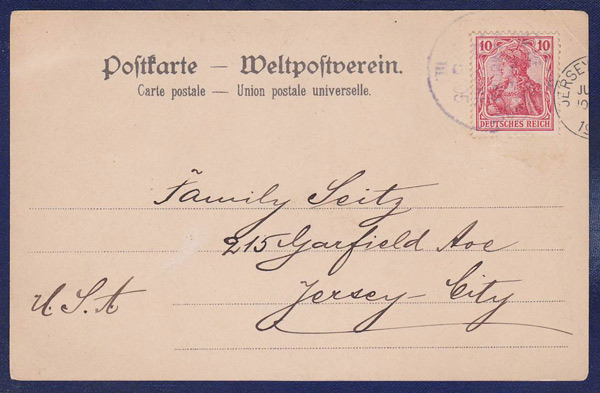 Postkarte — Weltpostverein.
Carte postale — Union postale universelle.
10 10
DEUTSCHES REICH
JERSEY
JU
19
Family Seitz
215 Garfield Ave
U.S.A
Jersey-City